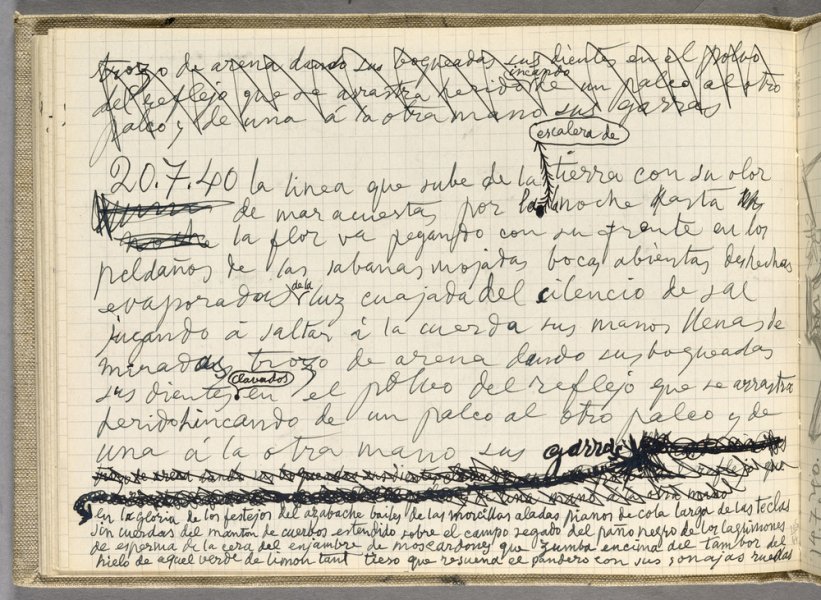 trozo de arena dando sus boqueadas sus dientes en el polvo
incando
del reflejo que se arrastra herido de un palco al otro
palco y de una á la otra mano sus garras
escalera de
20.7.40 la linea que sube de la tierra con su olor
de mar acuestas por la noche hasta
la flor va pegando con su frente en los
peldaños de las sabanas mojadas bocas abiertas deshechas
evaporadas de la luz cuajada del silencio de sal
jugando á saltar á la cuerda sus manos llenas de
miradas trozo de arena dando sus boqueadas
clavados
sus dientes en el polvo del reflejo que se arrastra
herido hincando de un palco al otro palco y de
una á la otra mano sus garras
en la gloria de los festejos del azabache bailes de las morcillas aladas pianos de cola larga de las teclas
sin cuerdas del manton de cuerbos estendido sobre el campo segado del paño negro de los lagrimones
de esperma de la cera del enjambre de moscardones que zumba encima del tambor del
hielo de aquel verde de limon tant tieso que resuena el pandero con sus sonajas ruedas